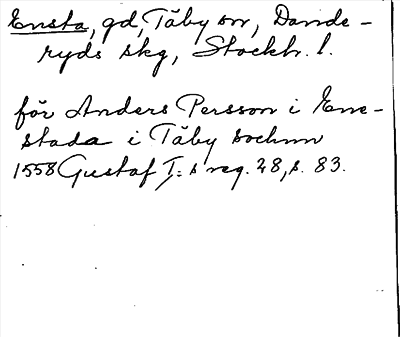 Ensta, gd, Täby sn, Dande-
ryds skg, Stockh. l.
för Anders Persson i Ene-
stada i Täby sochnn
1558 Gustaf I:s reg. 28, s. 83.